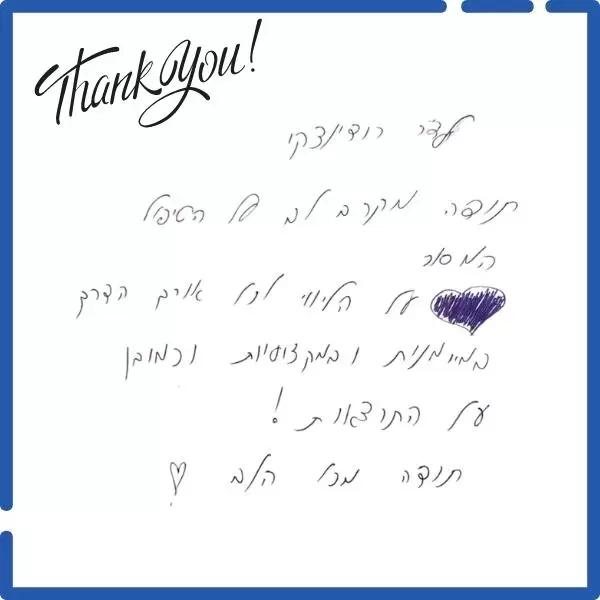 Thank You!
לד״ר רודינצקי
תודה מקרב לב על הטיפול
המסור
על הליווי לכל אורך הדרך
במיומנות ובמקצועיות וכמובן
על התוצאות!
תודה מכל הלב